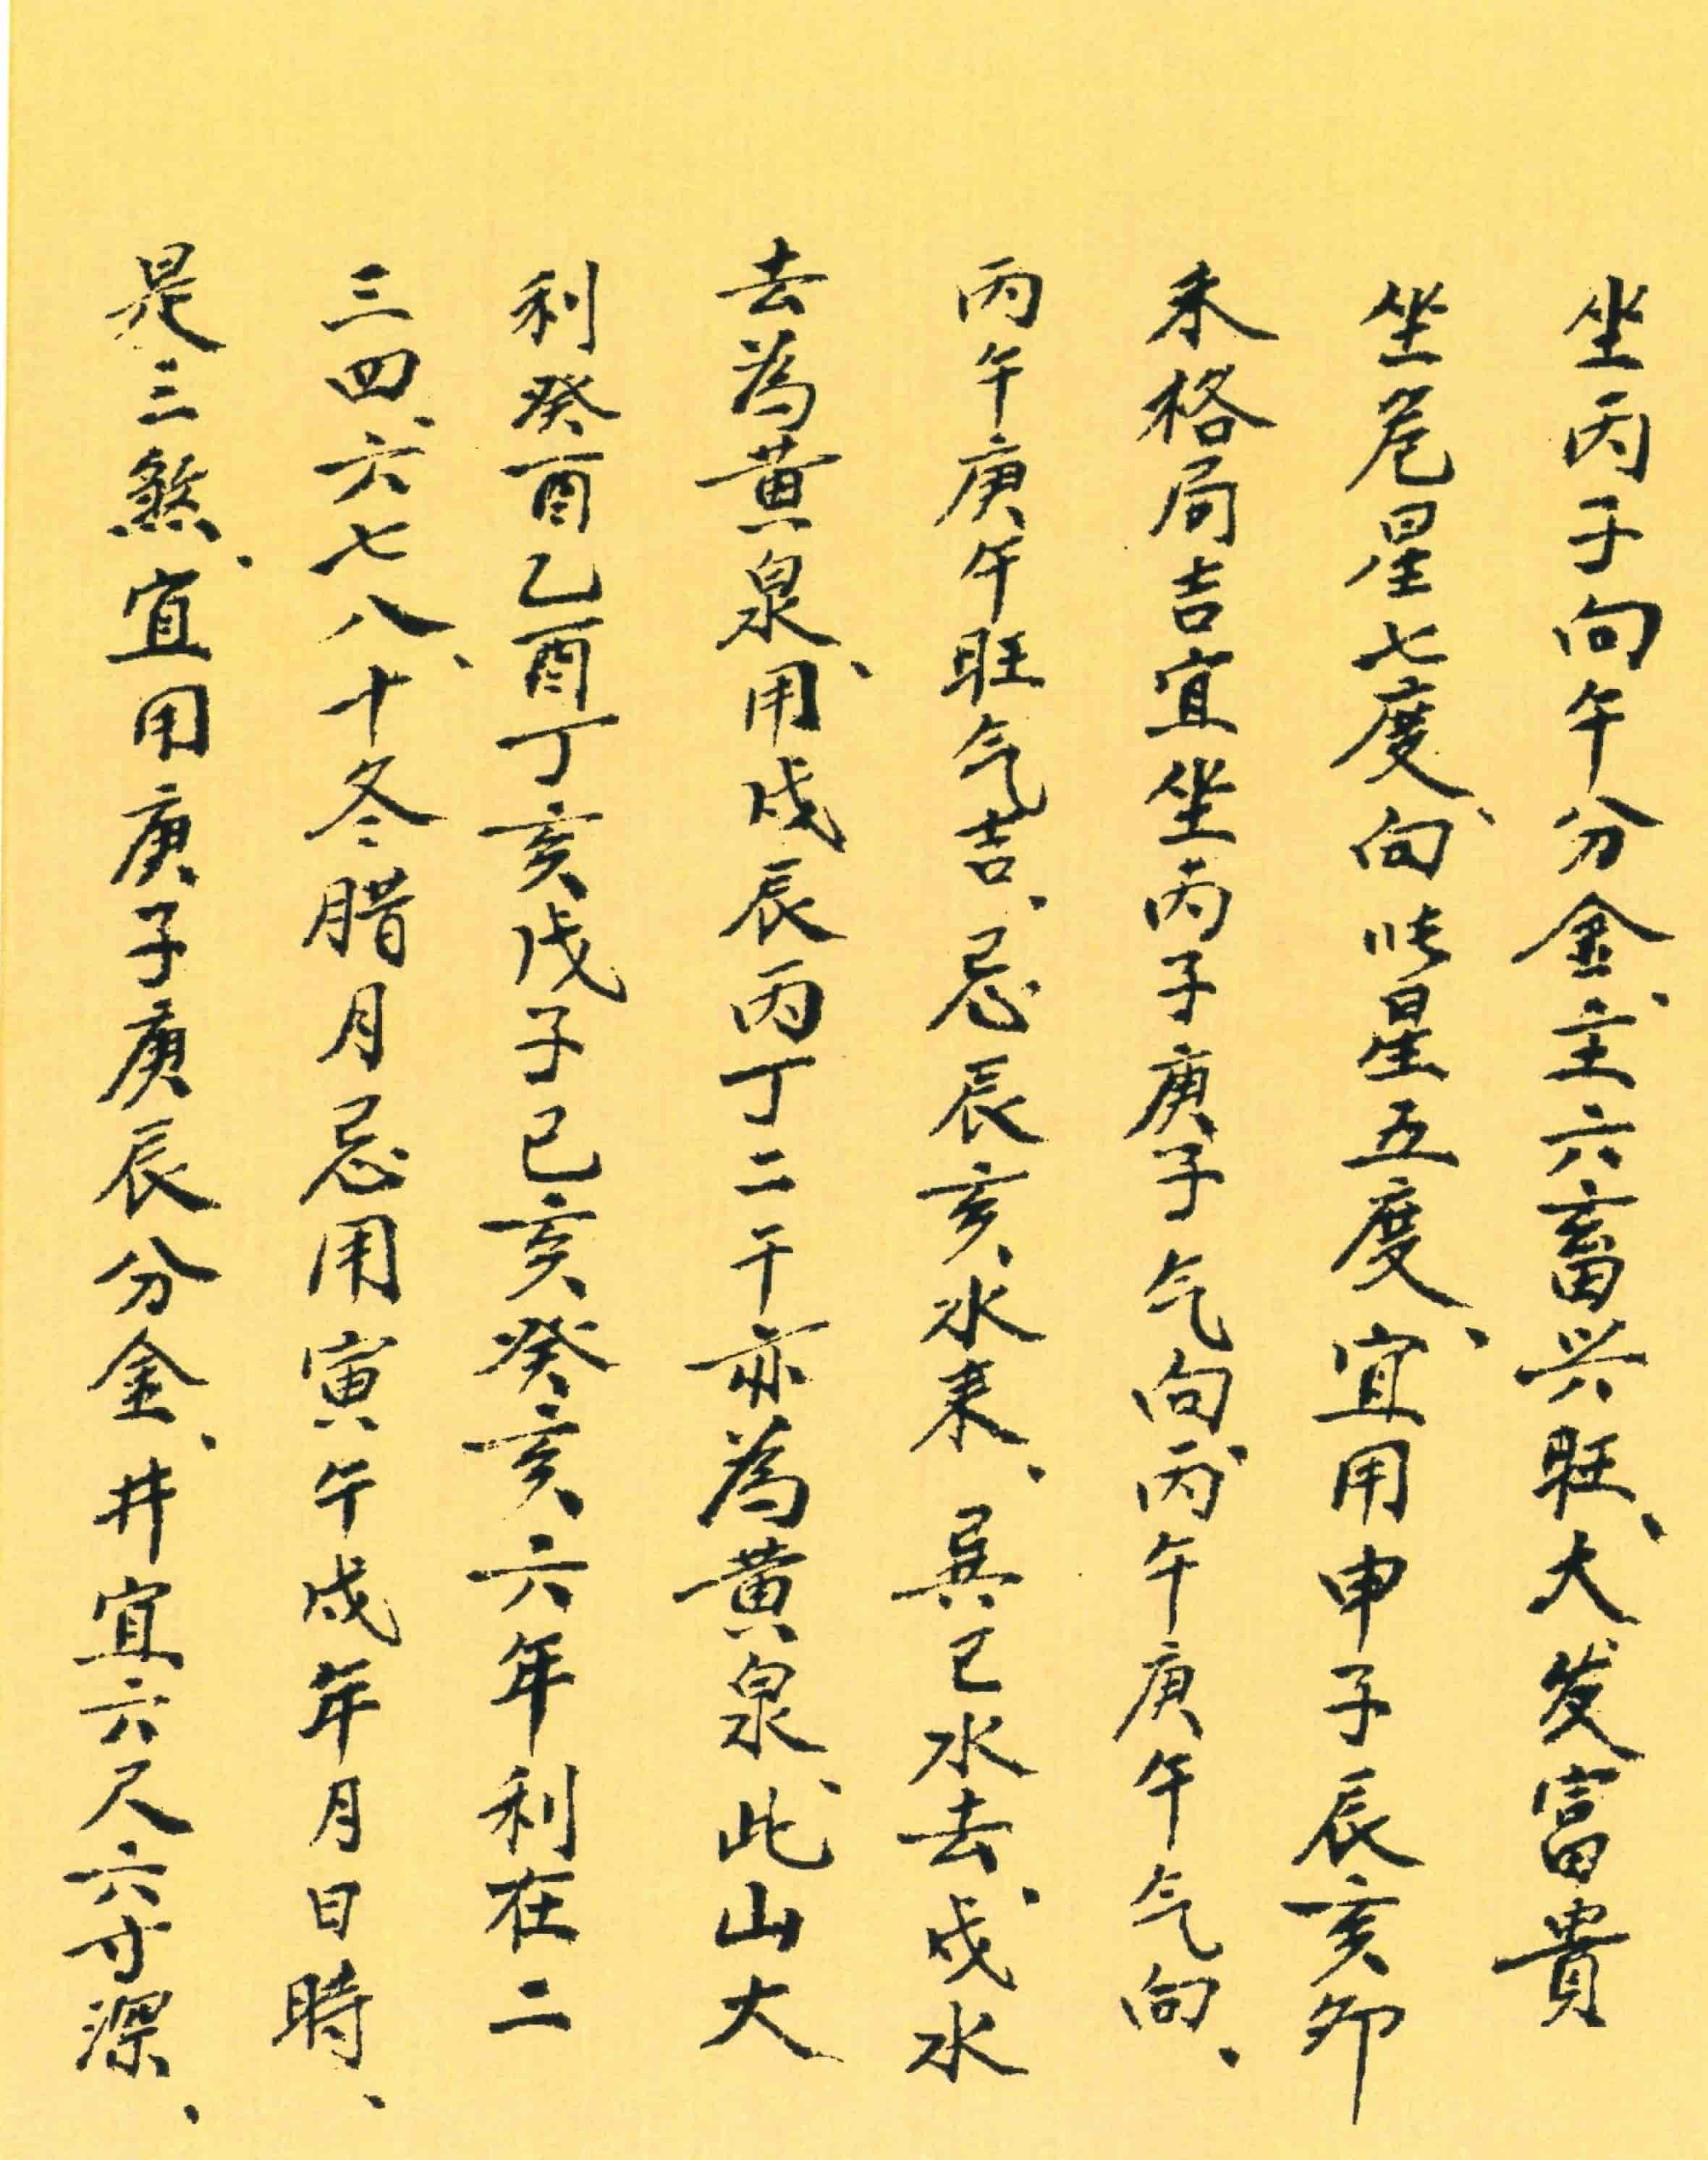 坐丙子向午分金、主六畜兴旺、大发富貴
坐危星七度、向星五度、宜用申子辰亥卯
未格局吉宜坐丙子庚子气向丙午庚午气向、
丙午庚午旺气吉、忌辰亥水来、巽巳水去、戌水
去為黄泉、用戌辰丙丁二干亦為黄泉、此山大
利癸酉乙酉丁亥戊子己亥癸亥六年利在二
三四、六七八、十冬腊月忌用寅午戌年月日時、
是三煞、宜用庚子庚辰分金、井宜六尺六寸深、